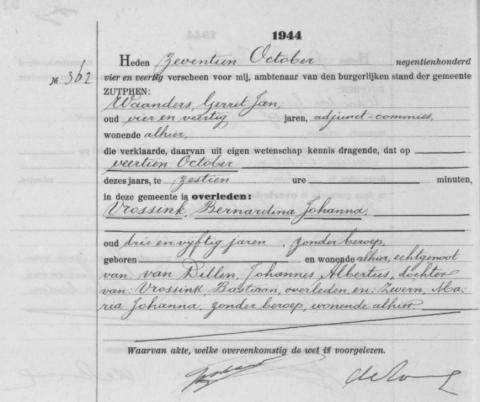 1944
Heden zeventien October negentienhonderd
№ 362 vier en veertig verscheen voor mij, ambtenaar van den burgerlijken stand der gemeente
ZUTPHEN:
Waanders, Gerrit Jan,
oud vier en veertig jaren, adjunct-commies,
wonende alhier,
die verklaarde, daarvan uit eigen wetenschap kennis dragende, dat op
veertien October
dezes jaars, te zestien ure minuten,
in deze gemeente is overleden:
Vrossink, Bernardina Johanna,
oud drie en vyftig jaren, zonder beroep,
geboren en wonende alhier, echtgenoot
van van Dillen, Johannes Albertus, dochter
van: Vrossink, Bastiaan, overleden, en: Zwern, Ma-
ria Johanna, zonder beroep, wonende alhier.
Waarvan akte, welke overeenkomstig de wet is voorgelezen.